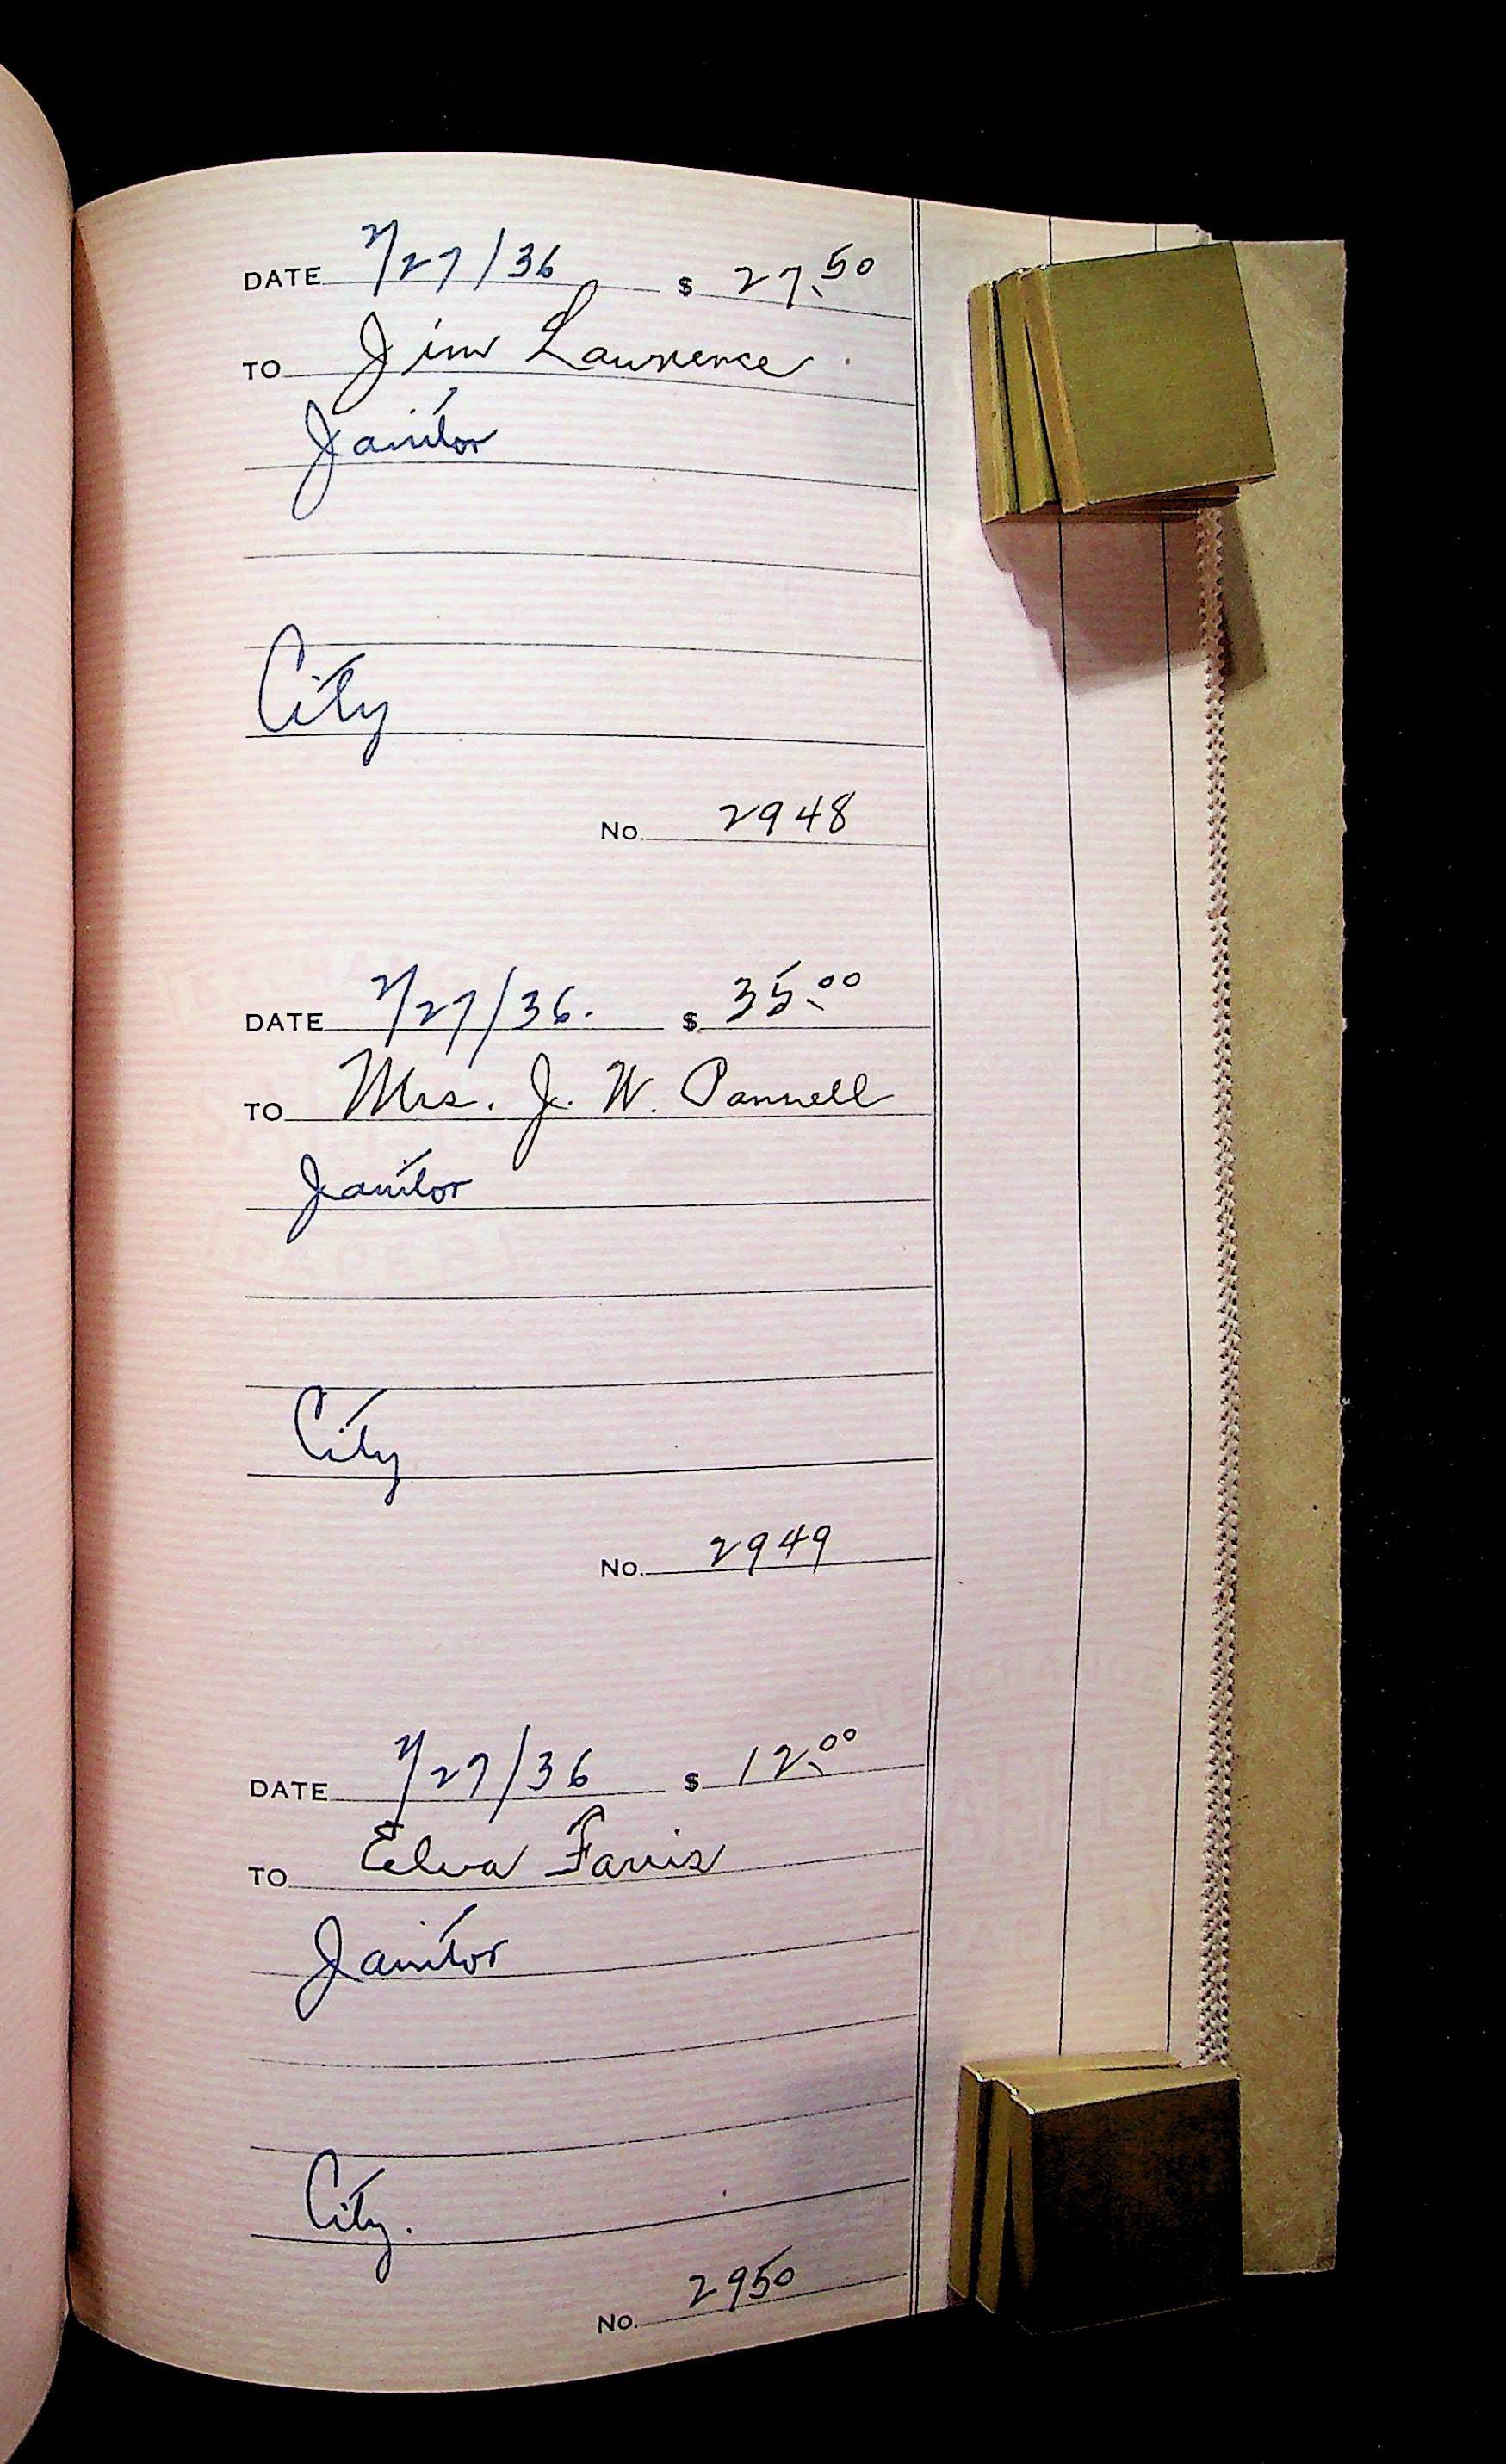 DATE 7/27/36 $ 27.50
TO Jim Lawrence
Janitor
City
No. 2948
DATE 7/27/36. $ 35.00
TO Mrs. J. W. Pannell
Janitor
City
No. 2949
DATE 7/27/36 $ 12.00
TO Elva Farris
Janitor
City.
No. 2950